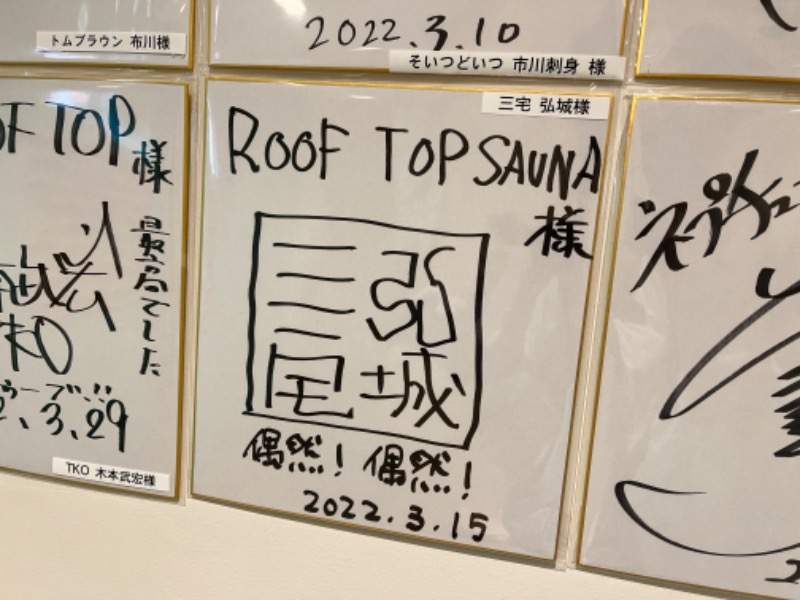 トムブラウン 布川様
2022.3.10
そいつどいつ 市川刺身 様
OF TOP
様
最高でした
2.3.29
TKO 木本武宏様
三宅 弘城様
ROOF TOP SAUNA
様
三宅
弘城
偶然! 偶然!
2022.3.15